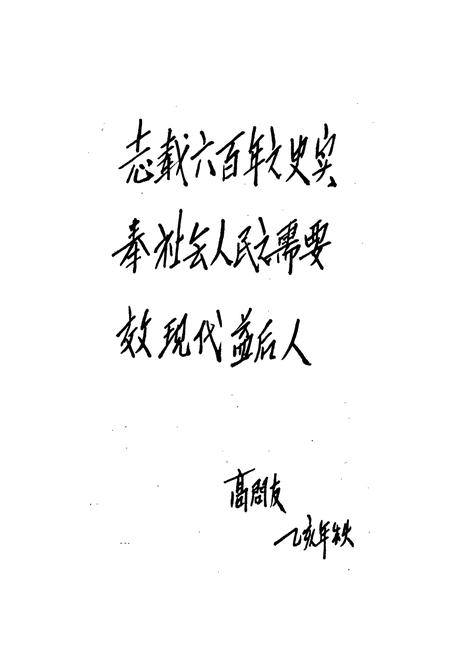 志载六百年之史实
奉社会人民之需要
效现代益后人
高問友
乙亥年秋